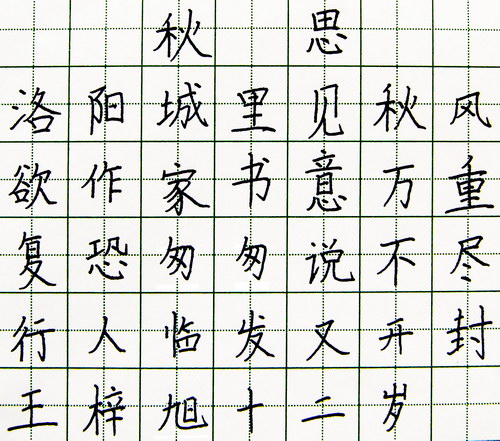 秋思
洛阳城里见秋风
欲作家书意万重
复恐匆匆说不尽
行人临发又开封
王梓旭十二岁